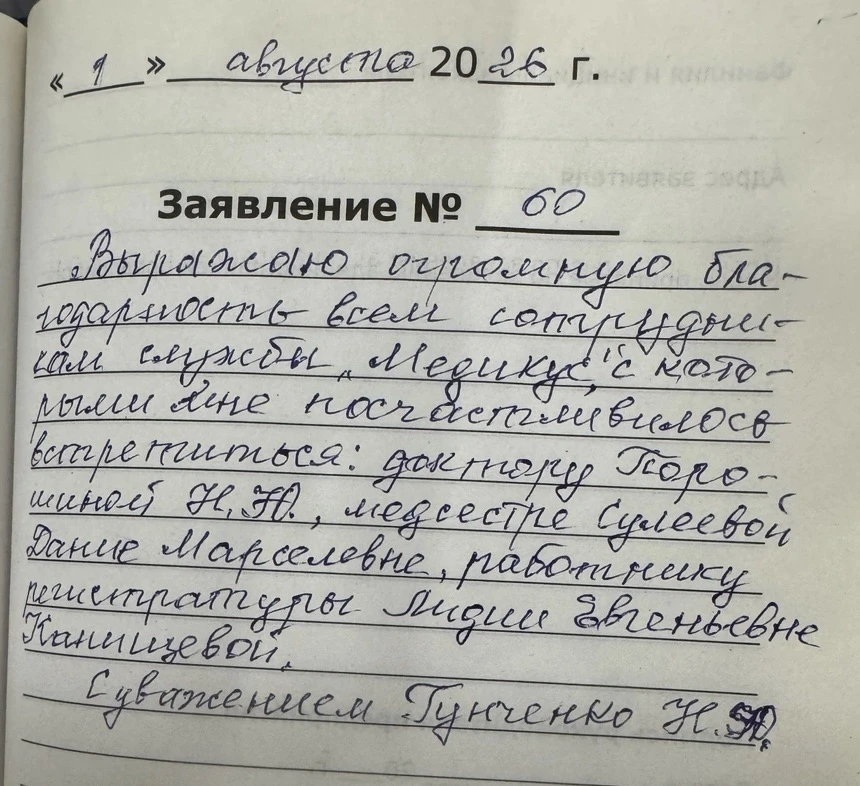 « 1 » августа 2026 г.
Заявление № 60
Выражаю огромную бла-
годарность всем сотрудни-
кам службы „Медикус", с кото-
рыми мне посчастливилось
встретиться: доктору Поро-
шиной Н.Ю., медсестре Сулеевой
Дание Марселевне, работнику
регистратуры Лидии Евгеньевне
Канищевой.
С уважением Гунченко Н.Ю.